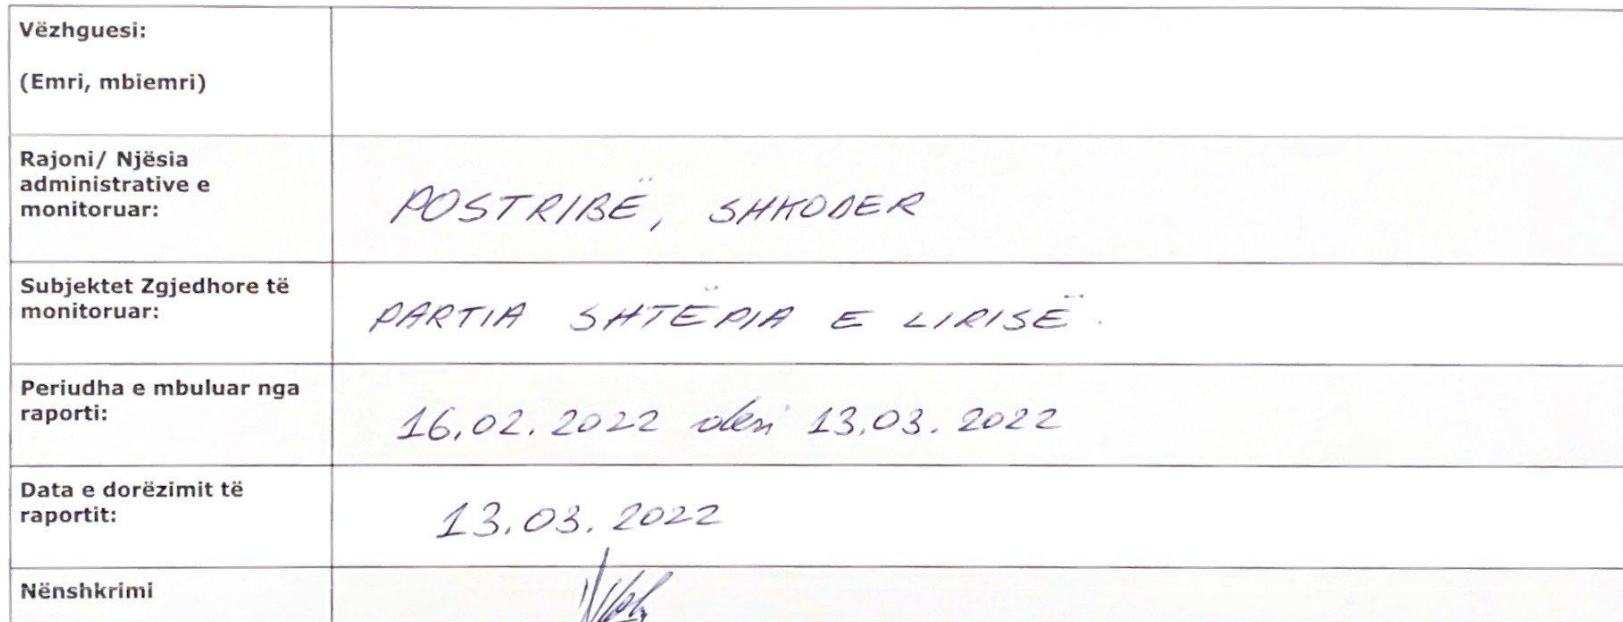 Vëzhguesi:
(Emri, mbiemri)
Rajoni/ Njësia
administrative e
monitoruar:
POSTRIBË, SHKODER
Subjektet Zgjedhore të
monitoruar:
PARTIA SHTËPIA E LIRISË.
Periudha e mbuluar nga
raporti:
16.02.2022 deri 13.03.2022
Data e dorëzimit të
raportit:
13.03.2022
Nënshkrimi